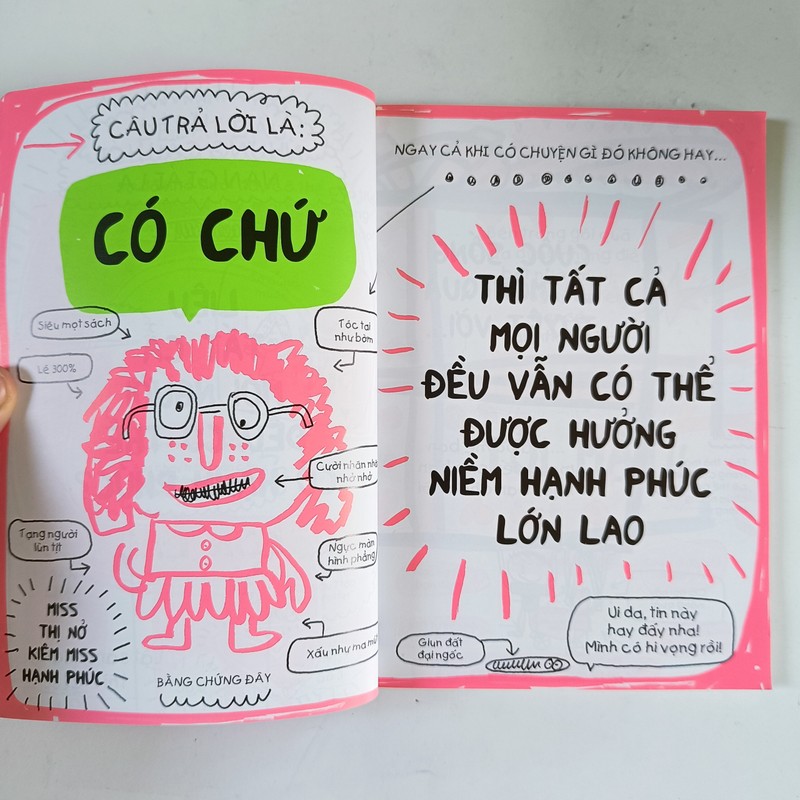 CÂU TRẢ LỜI LÀ:
CÓ CHỨ
Siêu mọt sách
Lé 300%
Tóc tai
như bờm
Cười nhăn
nhở nhở
Tạng người
lùn tịt
Ngực màn
hình phẳng
Xấu như ma
MISS
THỊ NỞ
KIÊM MISS
HẠNH PHÚC
BẰNG CHỨNG ĐÂY
NGAY CẢ KHI CÓ CHUYỆN GÌ ĐÓ KHÔNG HAY...
THÌ TẤT CẢ
MỌI NGƯỜI
ĐỀU VẪN CÓ THỂ
ĐƯỢC HƯỞNG
NIỀM HẠNH PHÚC
LỚN LAO
Giun đất
đại ngốc
Ui da, tin này
hay đấy nha!
Mình có hi vọng rồi!